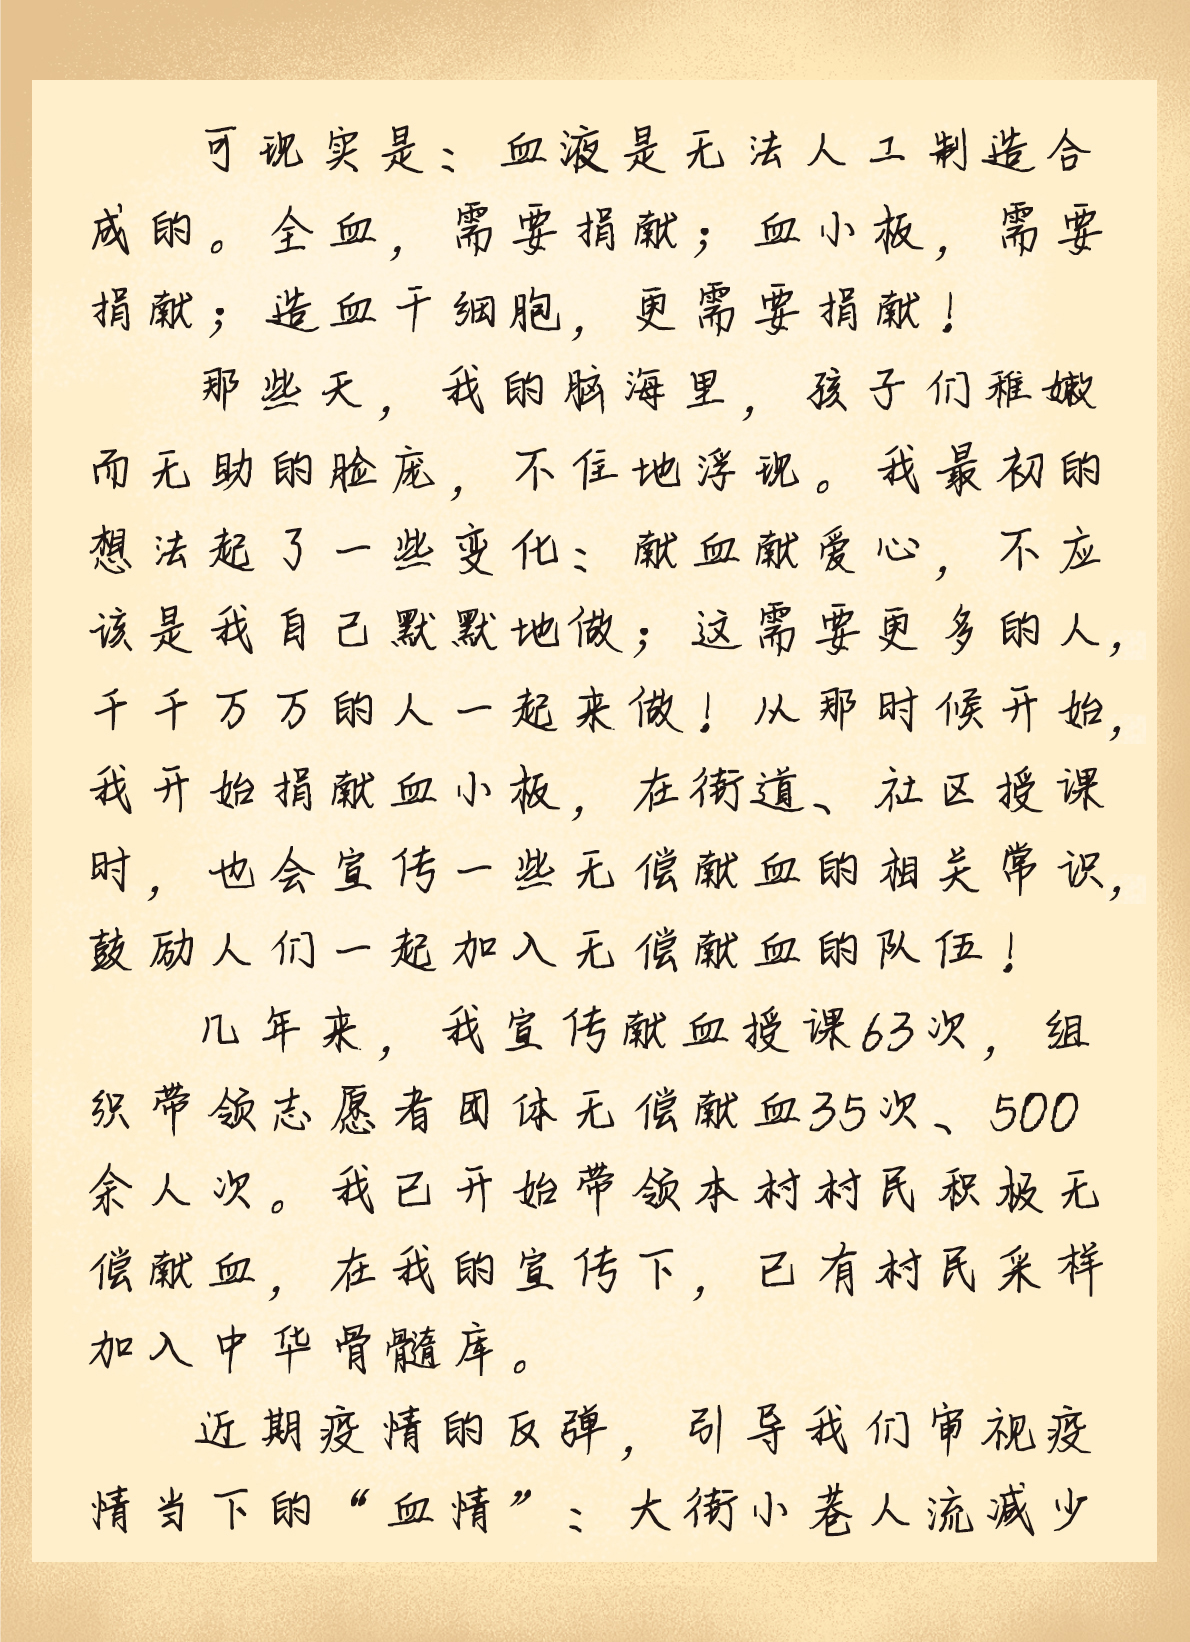 可现实是：血液是无法人工制造合
成的。全血，需要捐献；血小板，需要
捐献；造血干细胞，更需要捐献！
那些天，我的脑海里，孩子们稚嫩
而无助的脸庞，不住地浮现。我最初的
想法起了一些变化：献血献爱心，不应
该是我自己默默地做；这需要更多的人，
千千万万的人一起来做！从那时候开始，
我开始捐献血小板，在街道、社区授课
时，也会宣传一些无偿献血的相关常识，
鼓励人们一起加入无偿献血的队伍！
几年来，我宣传献血授课63次，组
织带领志愿者团体无偿献血35次、500
余人次。我已开始带领本村村民积极无
偿献血，在我的宣传下，已有村民采样
加入中华骨髓库。
近期疫情的反弹，引导我们审视疫
情当下的“血情”：大街小巷人流减少